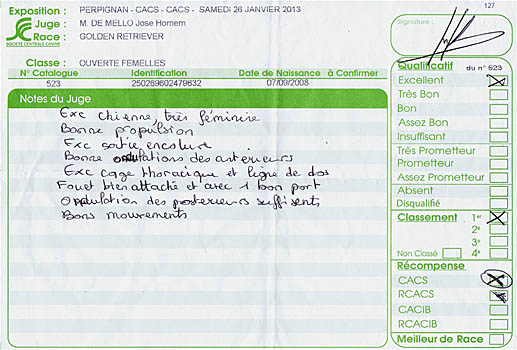 127
Exposition : PERPIGNAN - CACS - CACS - SAMEDI 26 JANVIER 2013
Juge : M. DE MELLO Jose Homem
Race : GOLDEN RETRIEVER
SOCIÉTÉ CENTRALE CANINE
Signature :
Classe : OUVERTE FEMELLES
N° Catalogue Identification Date de Naissance à Confirmer
523 250269602479632 07/09/2008
Notes du Juge
Exc chienne, très féminine
Bonne propulsion
Exc sortie encolure
Bonne angulations des antérieurs
Exc cage thoracique et ligne de dos
Fouet bien attaché et avec 1 bon port
Angulation des posterieurs suffisants
Bons mouvements
Qualificatif du n° 523
Excellent
Très Bon
Bon
Assez Bon
Insuffisant
Très Prometteur
Prometteur
Assez Prometteur
Absent
Disqualifié
Classement 1er
2e
3e
Non Classé 4e
Récompense
CACS
RCACS
CACIB
RCACIB
Meilleur de Race